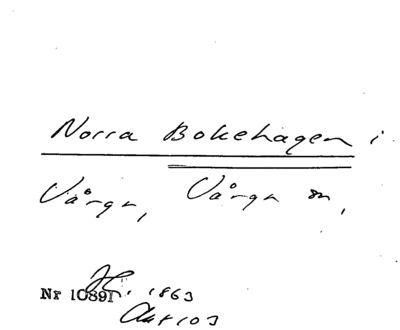 Norra Bokehagen i
Vårgn, Vårgn sn,
Nr 10891. 1863
Akt 103